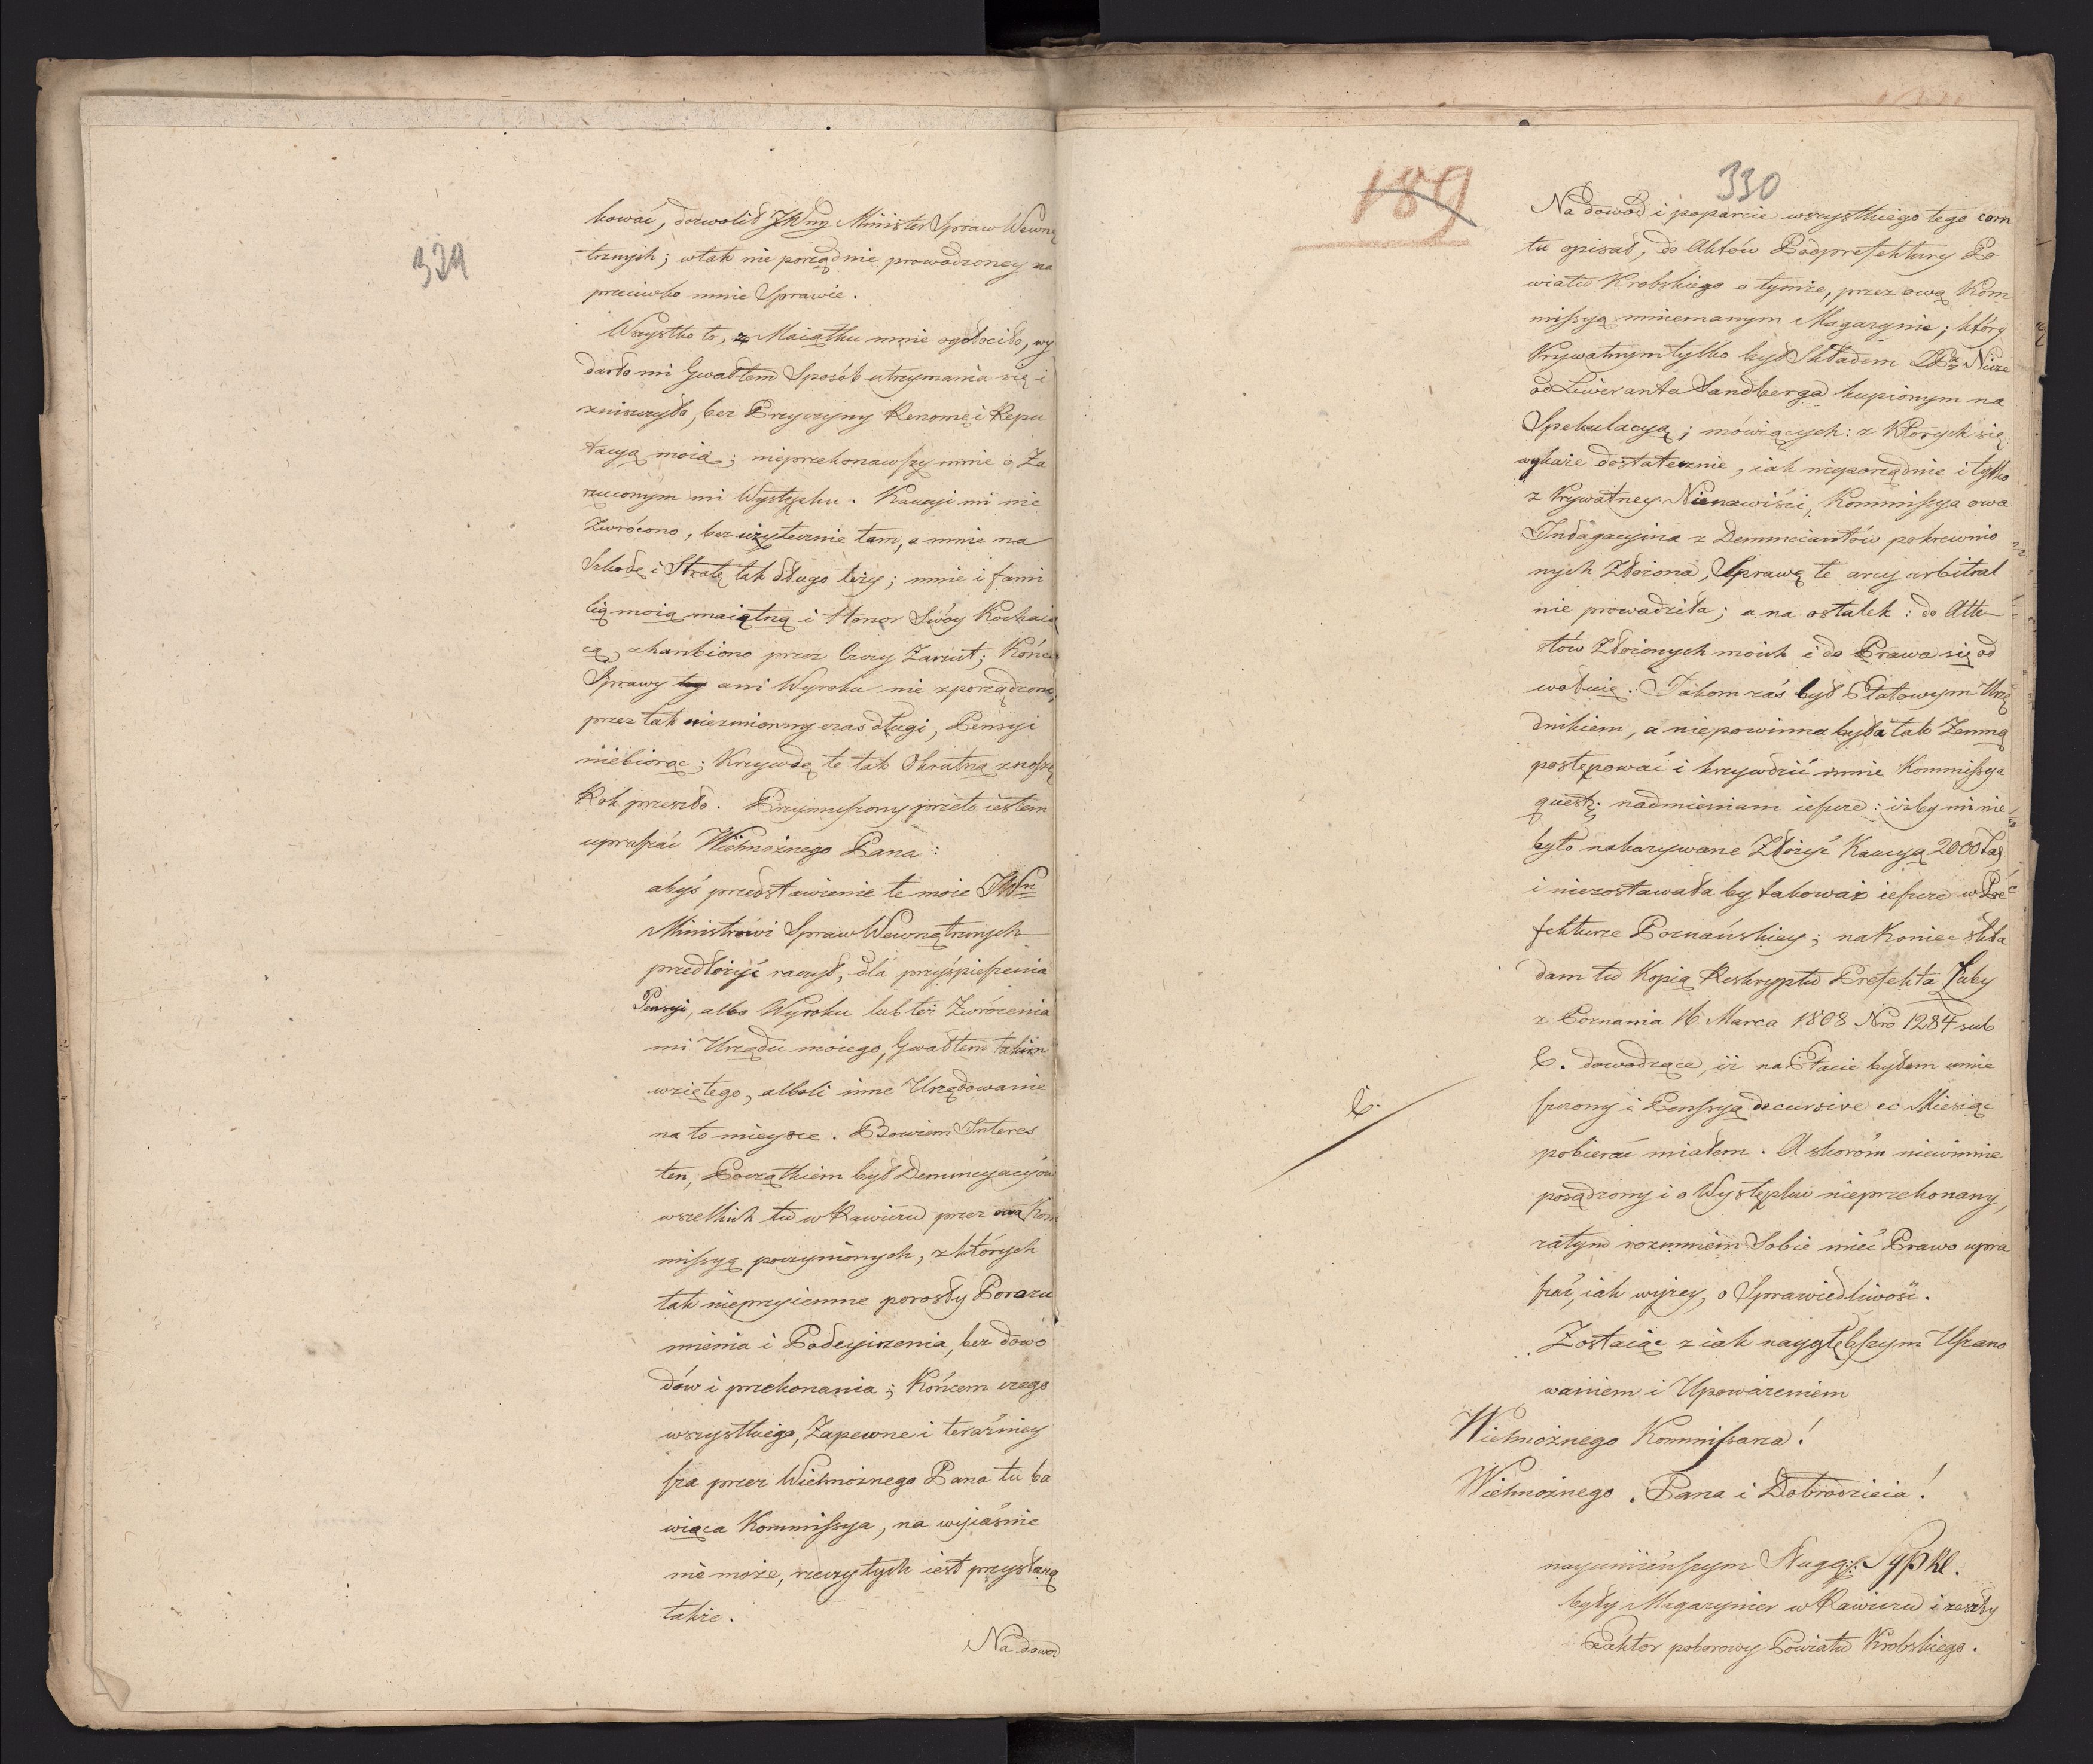 329
kować, dozwolił JWny Minister Spraw Wewnę
trznych; w tak nie porządnie prowadzoney na
przeciwko mnie Sprawie.
Wszystko to, z Maiątku mnie ogołociło, wy
darło mi Gwałtem Sposób utrzymania się i
zniszczyło, bez Przyczyny Renomę i Repu
tacyą moią; nieprzekonawszy mnie o Za
rzuconym mi Występku. Kaucyi mi nie
Zwrócono, bezużytecznie tam, a mnie na
Szkodę i Stratę tak długo leży; mnie i fami
lią moią maiątną i Honor Swóy Kochaią
cą, zhańbiono przez Czczy Zarzut; Końca
Sprawy ani Wyroku nie zporządzono,
przez tak niezmierny czas długi, Pensyi
niebiorąc; Krzywdę te tak Okrutną znoszę
Rok przeszło. Przymuszony przeto iestem
upraszać Wielmożnego Pana:
abyś przedstawienie te moie JWnu
Ministrowi Spraw Wewnątrznych
przedłożyć raczył, dla przyśpieszenia
Pensyi, albo Wyroku lub też Zwrócenia
mi Urzędu moiego, Gwałtem takim
wziętego, alboli inne Urzędowanie
na to mieysce. Bowiem Interes
ten, Początkiem był Denuncyacyów
wszelkich tu w Rawiczu przez ową Kom
missyą poczynionych, z których
tak nieprzyiemne porosły Porozu
mienia i Podeyizenia, bez dowo
dów i przekonania; Końcem czego
wszystkiego, Zapewne i teraźniey
sza przez Wielmożnego Pana tu ba
wiąca Kommissya, na wyiaśnie
nie może, rzeczy tych iest przysłaną
także.
Na dowod
189
330
Na dowód i poparcie wszystkiego tego com
tu opisał, do Aktów Podprefektury Po
wiatu Krobskiego o tymże, przez ową Kom
missyą mniemanym Magazynie; który
Prywatnym tylko był Składem
od Liweranta Sandberga kupionym na
Spekulacyą; mówiących: z Których się
wykaże dostatecznie, iak nieporządnie i tylko
z Prywatney Nienawiści, Kommissya owa
Indagacyina z Denunciantów pokrewnio
nych Złożona, Sprawę te arcy arbitral
nie prowadziła; a na ostatek: do Atte
stów Złożonych moich i do Prawa się od
wołuię. Jakom zaś był Etatowym Urzę
dnikiem, a niepowinna była tak Zemną
postępować i krzywdzić mnie Kommissya
quest: nadmieniam ieszcze: iżby mi nie
było nakazywane Złożyć Kaucyą 2000 Tal
i niezostawała by takoważ ieszcze w Pre
fekturze Poznańskiey; nakoniec skła
dam tu Kopią Reskryptu Prefekta
z Poznania 16 Marca 1808 Nro 1284 sub
C. dowodzące, iż na Etacie byłem umie
szczony i Pensyą decursive co Miesiąc
pobierać miałem. A skorom niewinnie
posądzony i o Występku nieprzekonany,
zatym rozumiem Sobie mieć Prawo upra
szać, iak wyżey, o Sprawiedliwość.
C.
Zostaiąc z iak naygłębszym Uszano
waniem i Upoważeniem
Wielmożnego Kommissarza!
Wielmożnego Pana i Dobrodzieia!
nayuniżeńszym Sługą:
były Magazynier w Rawiczu i zeszły
Faktor poborowy Powiatu Krobskiego.